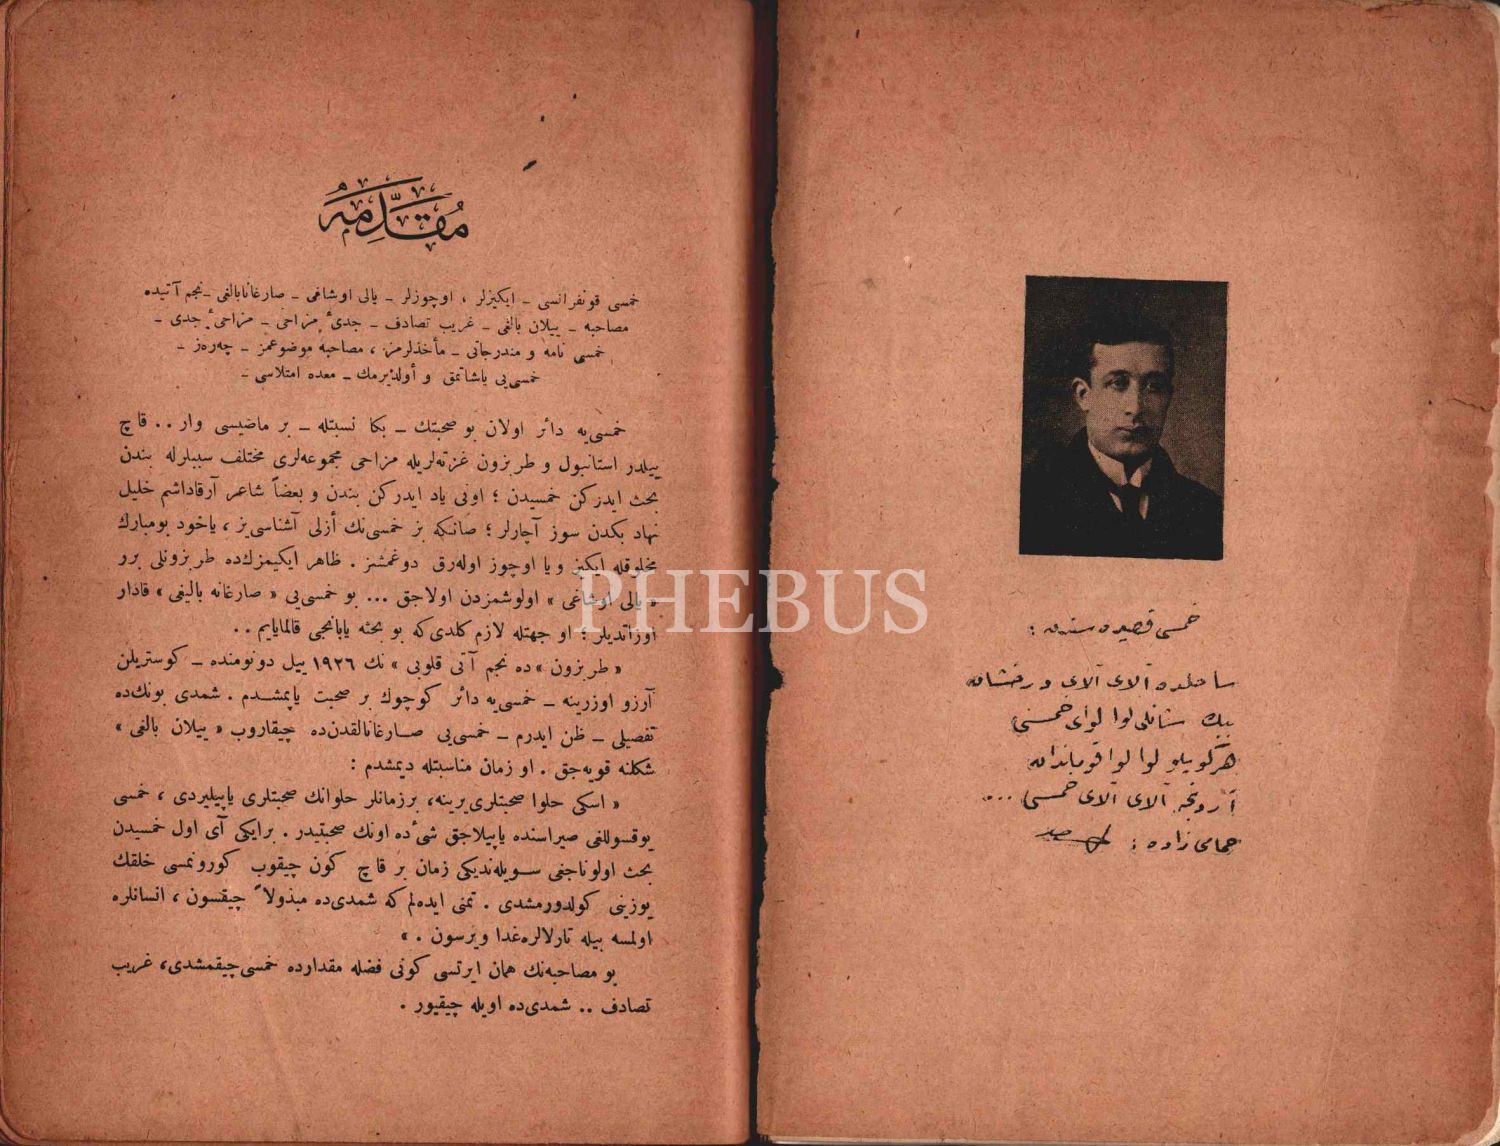 مُقَدِّمَهْ
خمسی قونفرانسی ـ ایکیزلر ، اوچوزلر ـ یالی اوشاغی ـ صارغانابالغی ـ نجم آتیده
مصاحبه ـ ییلان بالغی ـ غریب تصادف ـ جدیٔ مزاحی ـ مزاحیٔ جدی ـ
خمسی نامه و مندرجاتی ـ مأخذلرمز ، مصاحبه موضوعمز ـ چه‌ره‌ز ـ
خمسی‌یی یاشاتمق و أولدیرمك ـ معده امتلاسی ـ
خمسی‌یه دائر اولان بو صحبتك ـ بکا نسبتله ـ بر ماضیسی وار . . قاچ
ییلدر استانبول و طربزون غزته‌لریله مزاحی مجموعه‌لری مختلف سببلرله بندن
بحث ایدرکن خمسیدن ؛ اونی یاد ایدرکن بندن و بعضاً شاعر آرقاداشم خلیل
نهاد بکدن سوز آچارلر ؛ صانکه بز خمسی‌نك أزلی آشناسی‌یز ، یاخود بومبارك
مخلوقله ایکیز و یا اوچوز اوله‌رق دوغمشز . ظاهر ایکیمزك‌ده طربزونلی برر
« یالی اوشاغی » اولوشمزدن اولاجق ... بو خمسی‌یی « صارغانه بالیغی » قادار
اوزاتدیلر ؛ او جهتله لازم کلدی‌که بو بحثه یابانجی قالمایایم . .
« طربزون »ده نجم آتی قلوبی » نك ١٩٢٦ ییل دونومنده ـ کوستریلن
آرزو اوزرینه ـ خمسی‌یه دائر کوچوك بر صحبت یاپمشدم . شمدی بونك‌ده
تفصیلی ـ ظن ایدرم ـ خمسی‌یی صارغانالقدن‌ده چیقاروب « ییلان بالغی »
شکلنه قویه‌جق . او زمان مناسبتله دیمشدم :
« اسکی حلوا صحبتلری یرینه، برزمانلر حلوانك صحبتلری یاپیلیردی ، خمسی
یوقسوللغی صیراسنده یاپیلاجق شی‌ٔده اونك صحبتیدر . برایکی آی اول خمسیدن
بحث اولوناجغی سویله‌ندیکی زمان بر قاچ کون چیقوب کورونمسی خلقك
یوزینی کولدورمشدی . تمنی ایده‌لم که شمدی‌ده مبذولاً چیقسون ، انسانلره
اولمسه بیله تارلالره‌غدا ویرسون . »
بو مصاحبه‌نك همان ایرتسی کونی فضله مقدارده خمسی چیقمشدی، غریب
تصادف . . شمدی‌ده اویله چیقیور .
خمسی قصیده‌سندن :
ساحلده آلای آلای درخشان
بیك شانلی لوا لوای خمسی
هر کویلو لوا لوا قوماندان
آرونجه آلای آلای خمسی ...
حمامی زاده :
PHEBUS